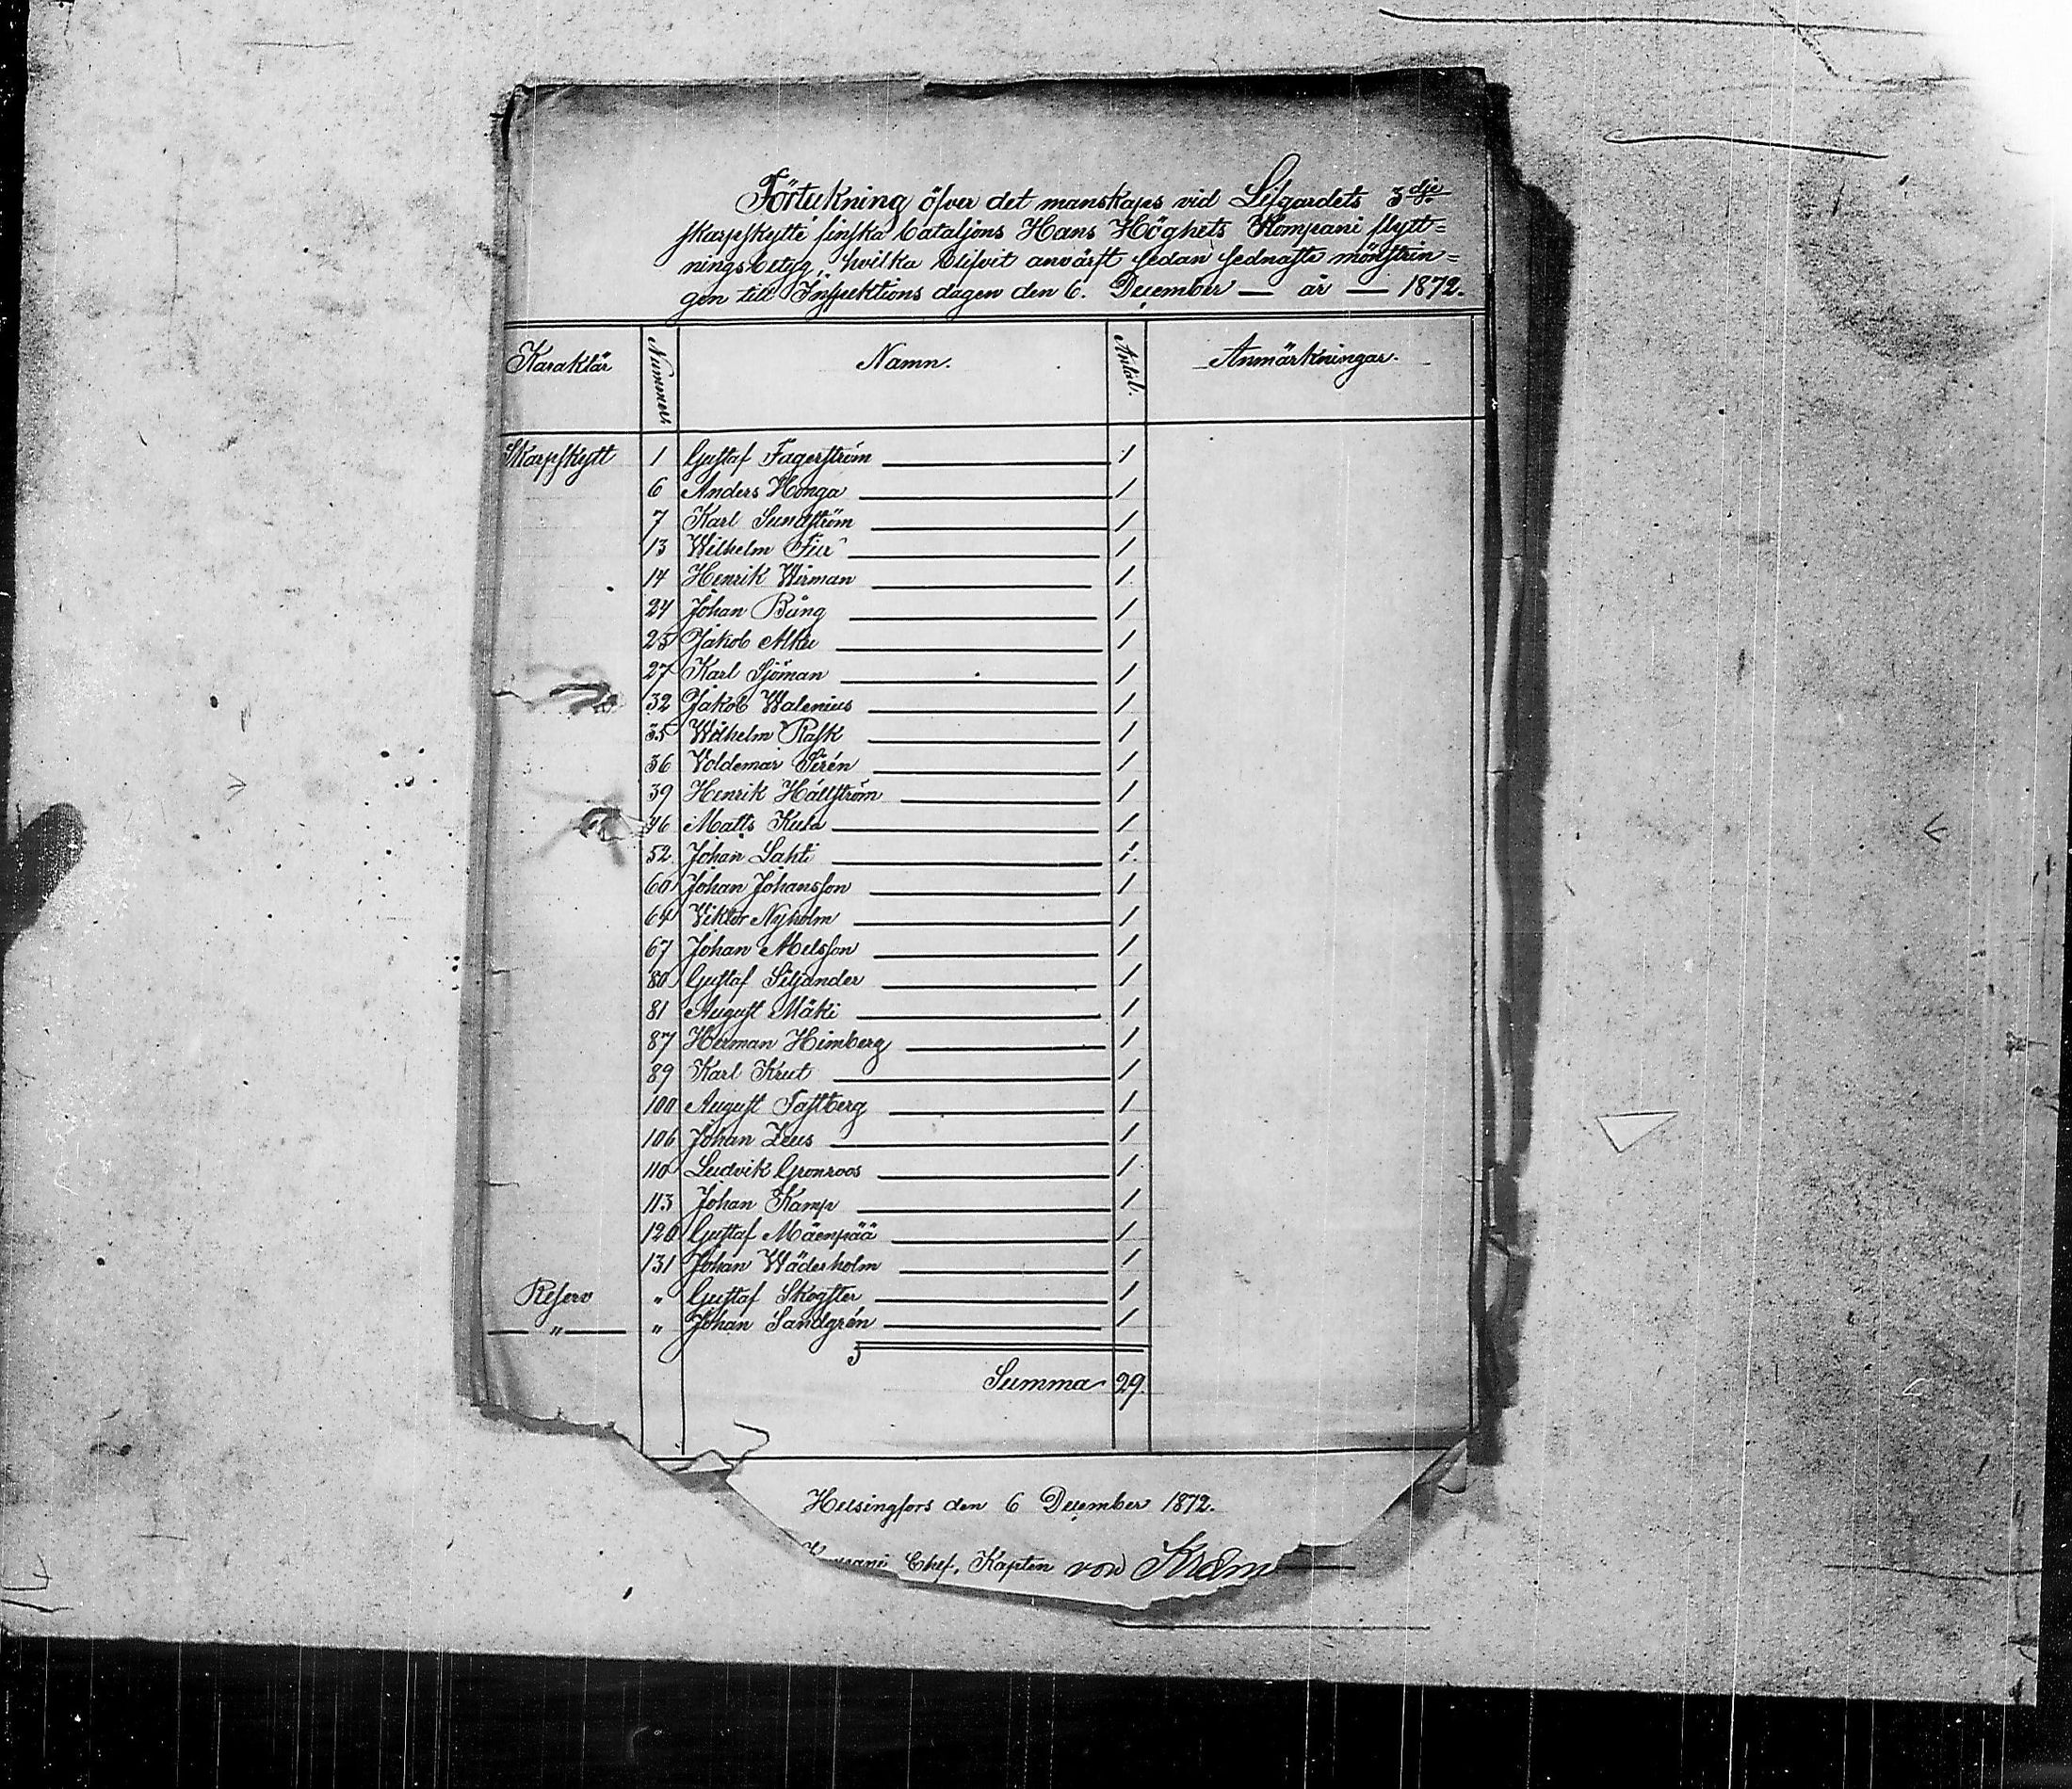 Förteckning öfver det manskaps vid Lifgardets 3dje
skarpskytte finska bataljons Hans Höghets Kompani flytt=
ningsbetyg, hvilka blifvit anvärft sedan sednaste mönstrin=
gen till Inspektions dagen den 6. December — år — 1872.
Karaktär Nummer Namn. Antal. Anmärkningar.
Skarpskytt 1 Gustaf Fagerström 1
6 Anders Honga 1
7 Karl Sundström 1
13 Wilhelm 1
14 Henrik Wirman 1
24 Johan Bång 1
25 Jakob 1
27 Karl Sjöman 1
32 Jakob Walenius 1
35 Wilhelm Rask 1
36 Voldemar Sirén 1
39 Henrik Hällström 1
46 Matts Kula 1
52. Johan Lahti 1.
60 Johan Johansson 1
64 Viktor Nyholm 1
67 Johan Melsson 1
80 Gustaf Siljander 1
81 August Mäki 1
87 Herman Himberg 1
89 Karl Krut 1
100 August Tastberg 1
106 Johan Zeus 1
110 Ludvik Gronroos 1
113 Johan Kamp 1
120 Gustaf Mäenpää 1
131 Johan Wäderholm 1
Reserv " Gustaf Skogster 1
— " — " Johan Sandgrén 1
Summa 29.
Helsingfors den 6 December 1872.
Chef, Kapten von